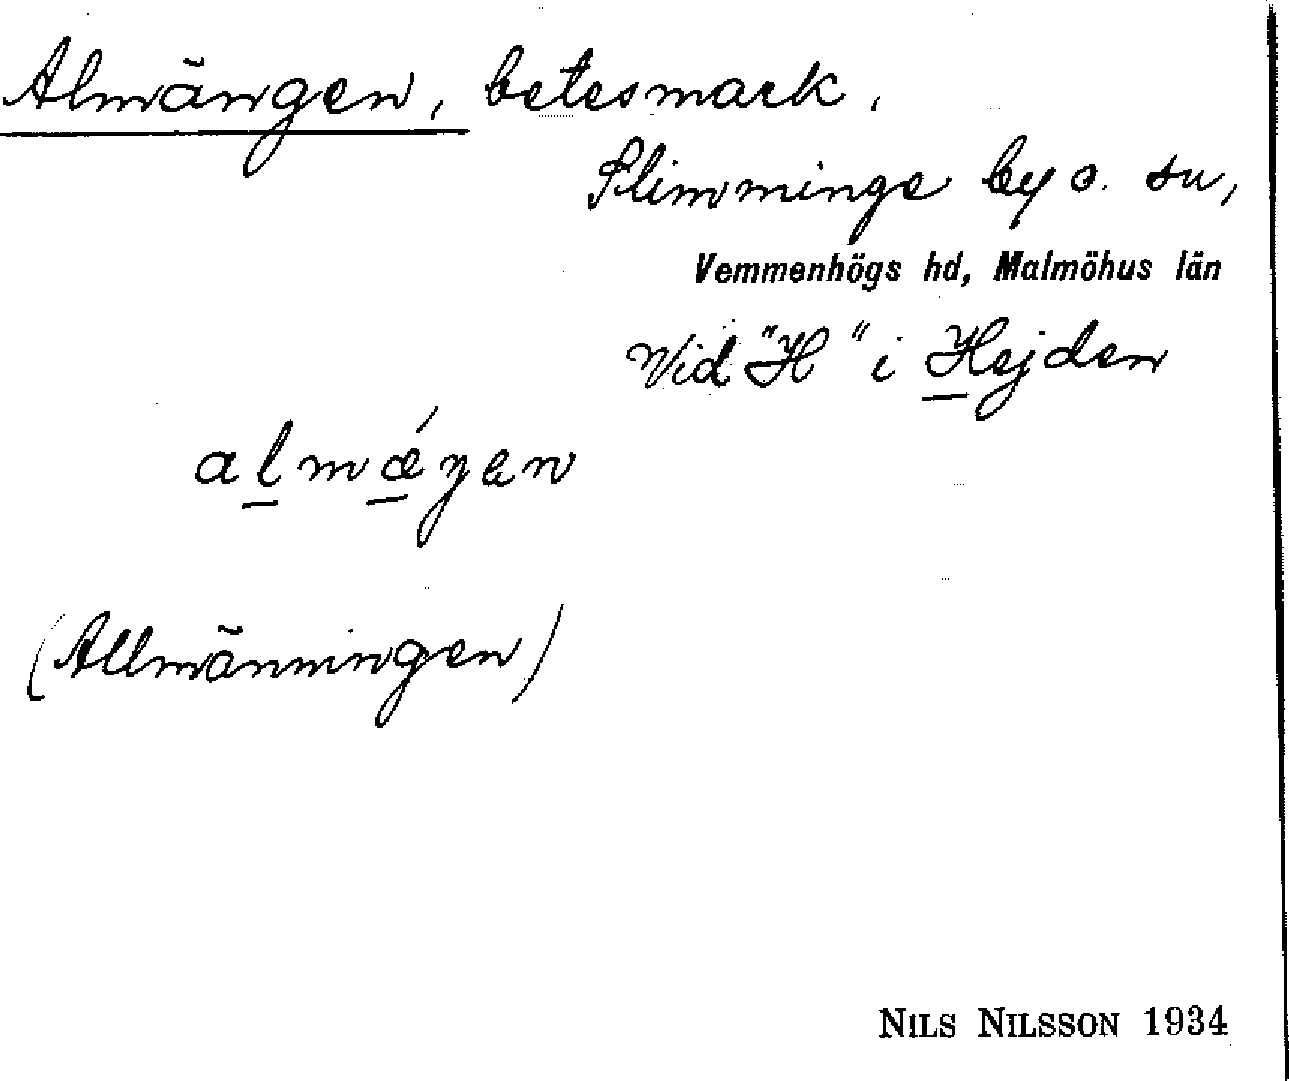 Almängen, betesmark.
Slimminge by o. sn,
Vemmenhögs hd, Malmöhus län
Vid "H" i Hejden
almǽŋen
(Allmänningen)
NILS NILSSON 1934